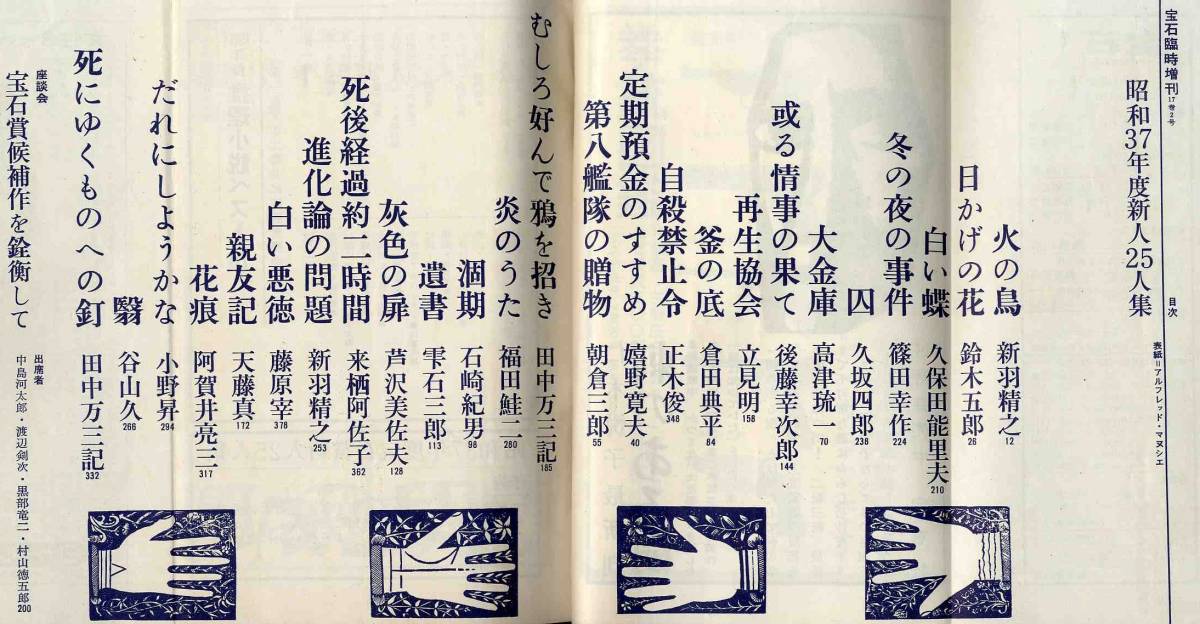 宝石臨時増刊 17巻2号
目次
表紙=アルフレッド・マヌシエ
昭和37年度新人25人集
火の鳥 新羽精之 12
日かげの花 鈴木五郎 26
白い蝶 久保田能里夫 210
冬の夜の事件 篠田幸作 224
囚 久坂四郎 238
大金庫 高津琉一 70
或る情事の果て 後藤幸次郎 144
再生協会 立見明 158
釜の底 倉田典平 84
自殺禁止令 正木俊 348
定期預金のすすめ 嬉野寛夫 40
第八艦隊の贈物 朝倉三郎 55
むしろ好んで鴉を招き 田中万三記 185
炎のうた 福田鮭二 280
涸期 石崎紀男 98
遺書 雫石三郎 113
灰色の扉 芦沢美佐夫 128
死後経過約二時間 来栖阿佐子 362
進化論の問題 新羽精之 253
白い悪徳 藤原宰 378
親友記 天藤真 172
花痕 阿賀井亮三 317
だれにしようかな 小野昇 294
翳 谷山久 266
死にゆくものへの釘 田中万三記 332
座談会
宝石賞候補作を銓衡して
出席者
中島河太郎 渡辺剣次・黒部竜二・村山徳五郎 200